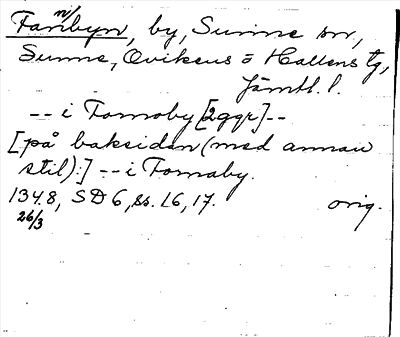 n/
Fanbyn, by, Sunne sn,
Sunne, Ovikens o Hallens tg,
Jämtl. l.
-- i Fornoby [2ggr] --
[på baksidan (med annan
stil):] -- i Fornaby.
1348, SD 6, ss. 16, 17. orig.
26/3